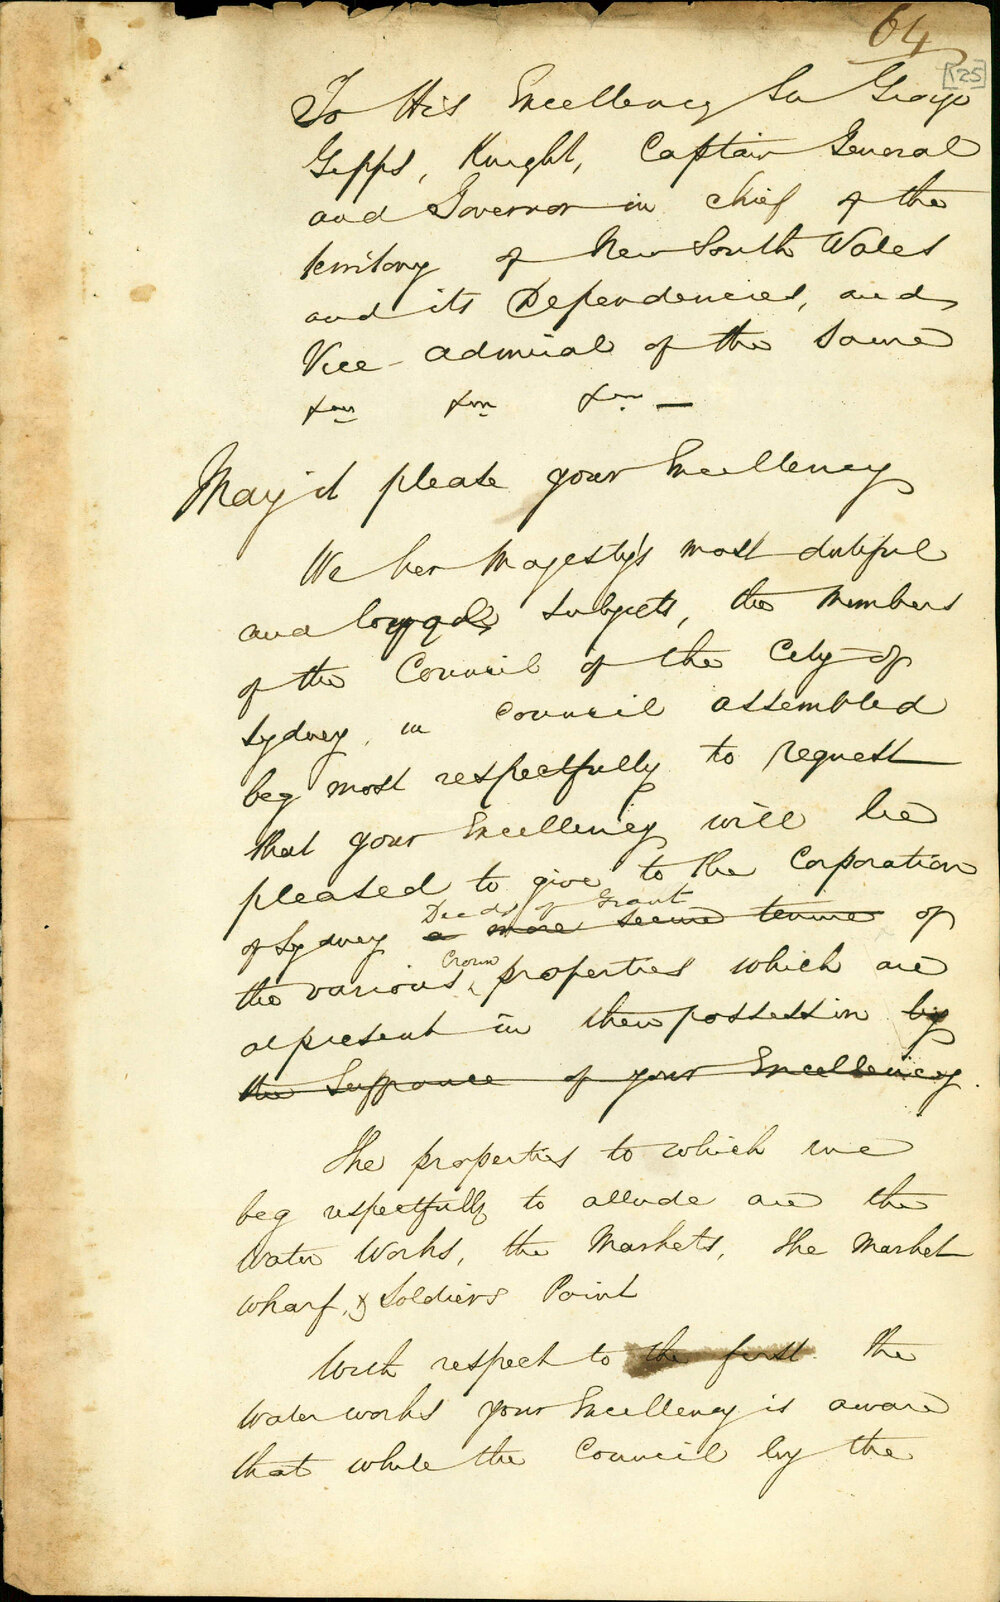 64
[R25]
To His Excellency Sir George
Gipps, Knight, Captain General
and Governor in chief of the
territory of New South Wales
and its Dependencies, and
Vice admiral of the Same
&c &c &c —
May it please your Excellency
We her Majesty's most dutiful
and loyal subjects, the Members
of the Council of the City of
Sydney, in Council assembled
beg most respectfully to request
that your Excellency will be
pleased to give to the Corporation
Deeds of Grant
of Sydney a more secure tenure of
Crown
the various properties which are
at present in their possession by
the Sufferance of your Excellency.
The properties to which we
beg respectfully to allude are the
Water Works, the Markets, the Market
Wharf, & Soldiers Point
With respect to the first the
Water works your Excellency is aware
that while the Council by the